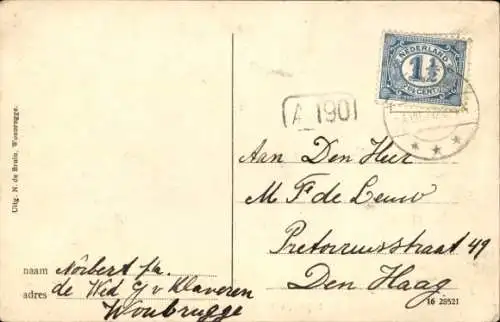 Uitg. N. de Bruin, Woubrugge.
NEDERLAND
1½
CENT
A 190
Aan Den Heer
M F de Leeuw
Pretoriusstraat 49
Den Haag
naam Norbert p/a
adres de Wed G v Klaveren
Woubrugge
16 28521